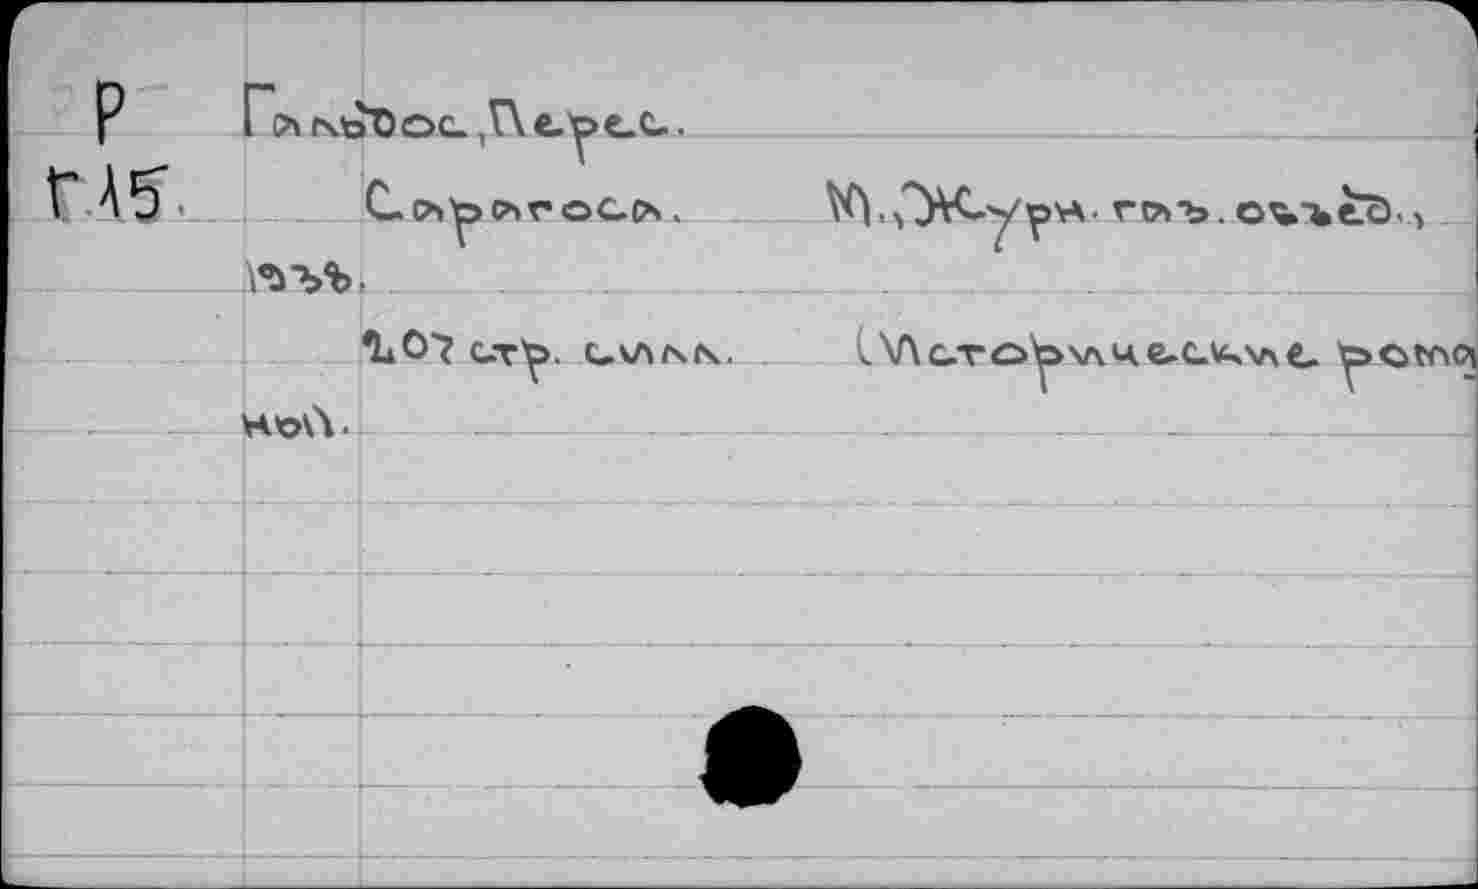 Р Гальдос, Перес.
Г-15. Сарагоса. М., Журн. газ. объед.,
1935.
207 стр. с илл. (Исторические рома
ны).